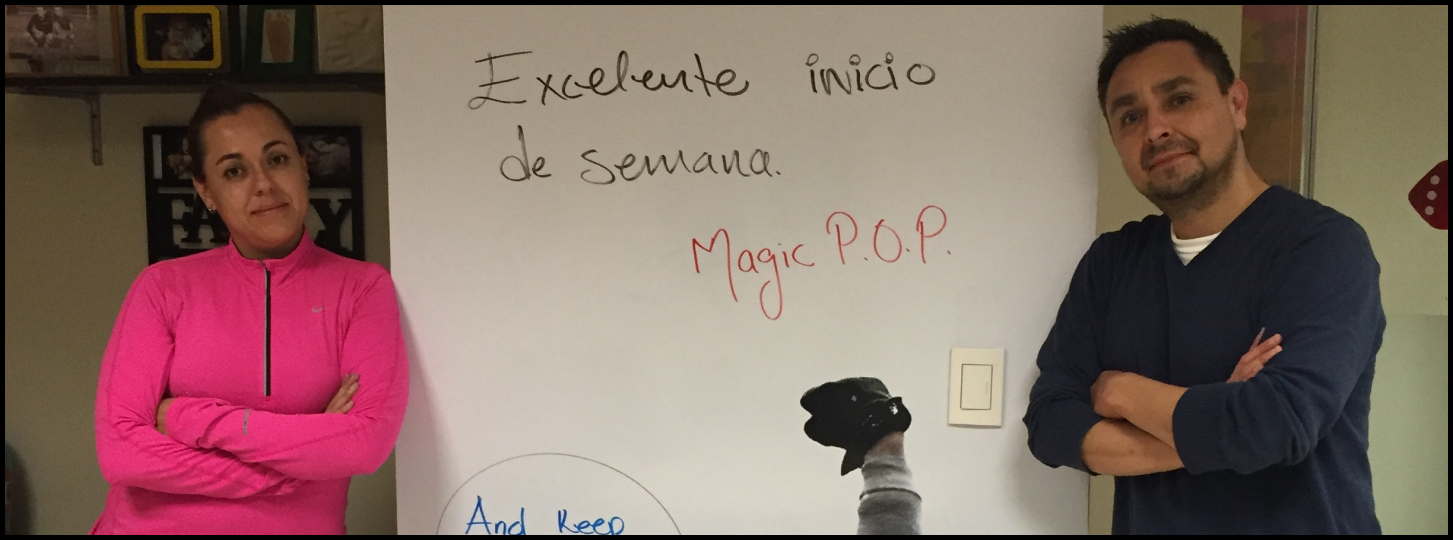 Excelente inicio
de semana.
Magic P.O.P.
And Keep
FAMILY